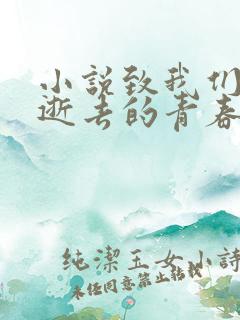 小说致我们
逝去的青春
纯潔玉女小詩
未经同意禁止转载